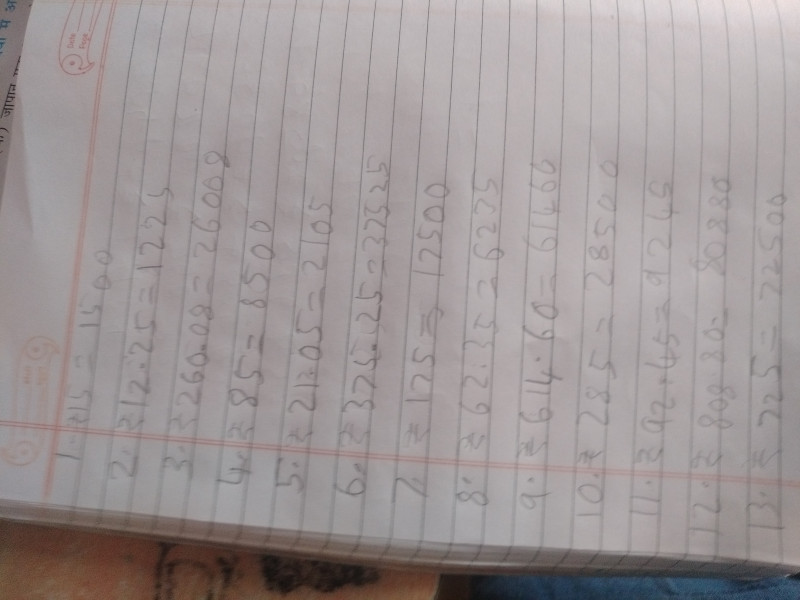 1. ₹15 = 1500
2. ₹12.25 = 1225
3. ₹260.08 = 26008
4. ₹85 = 8500
5. ₹21.05 = 2105
6. ₹375.25 = 37525
7. ₹175 = 17500
8. ₹62.35 = 6235
9. ₹614.60 = 61460
10. ₹285 = 28500
11. ₹92.45 = 9245
12. ₹808.80 = 80880
13. ₹725 = 72500
Date
Page